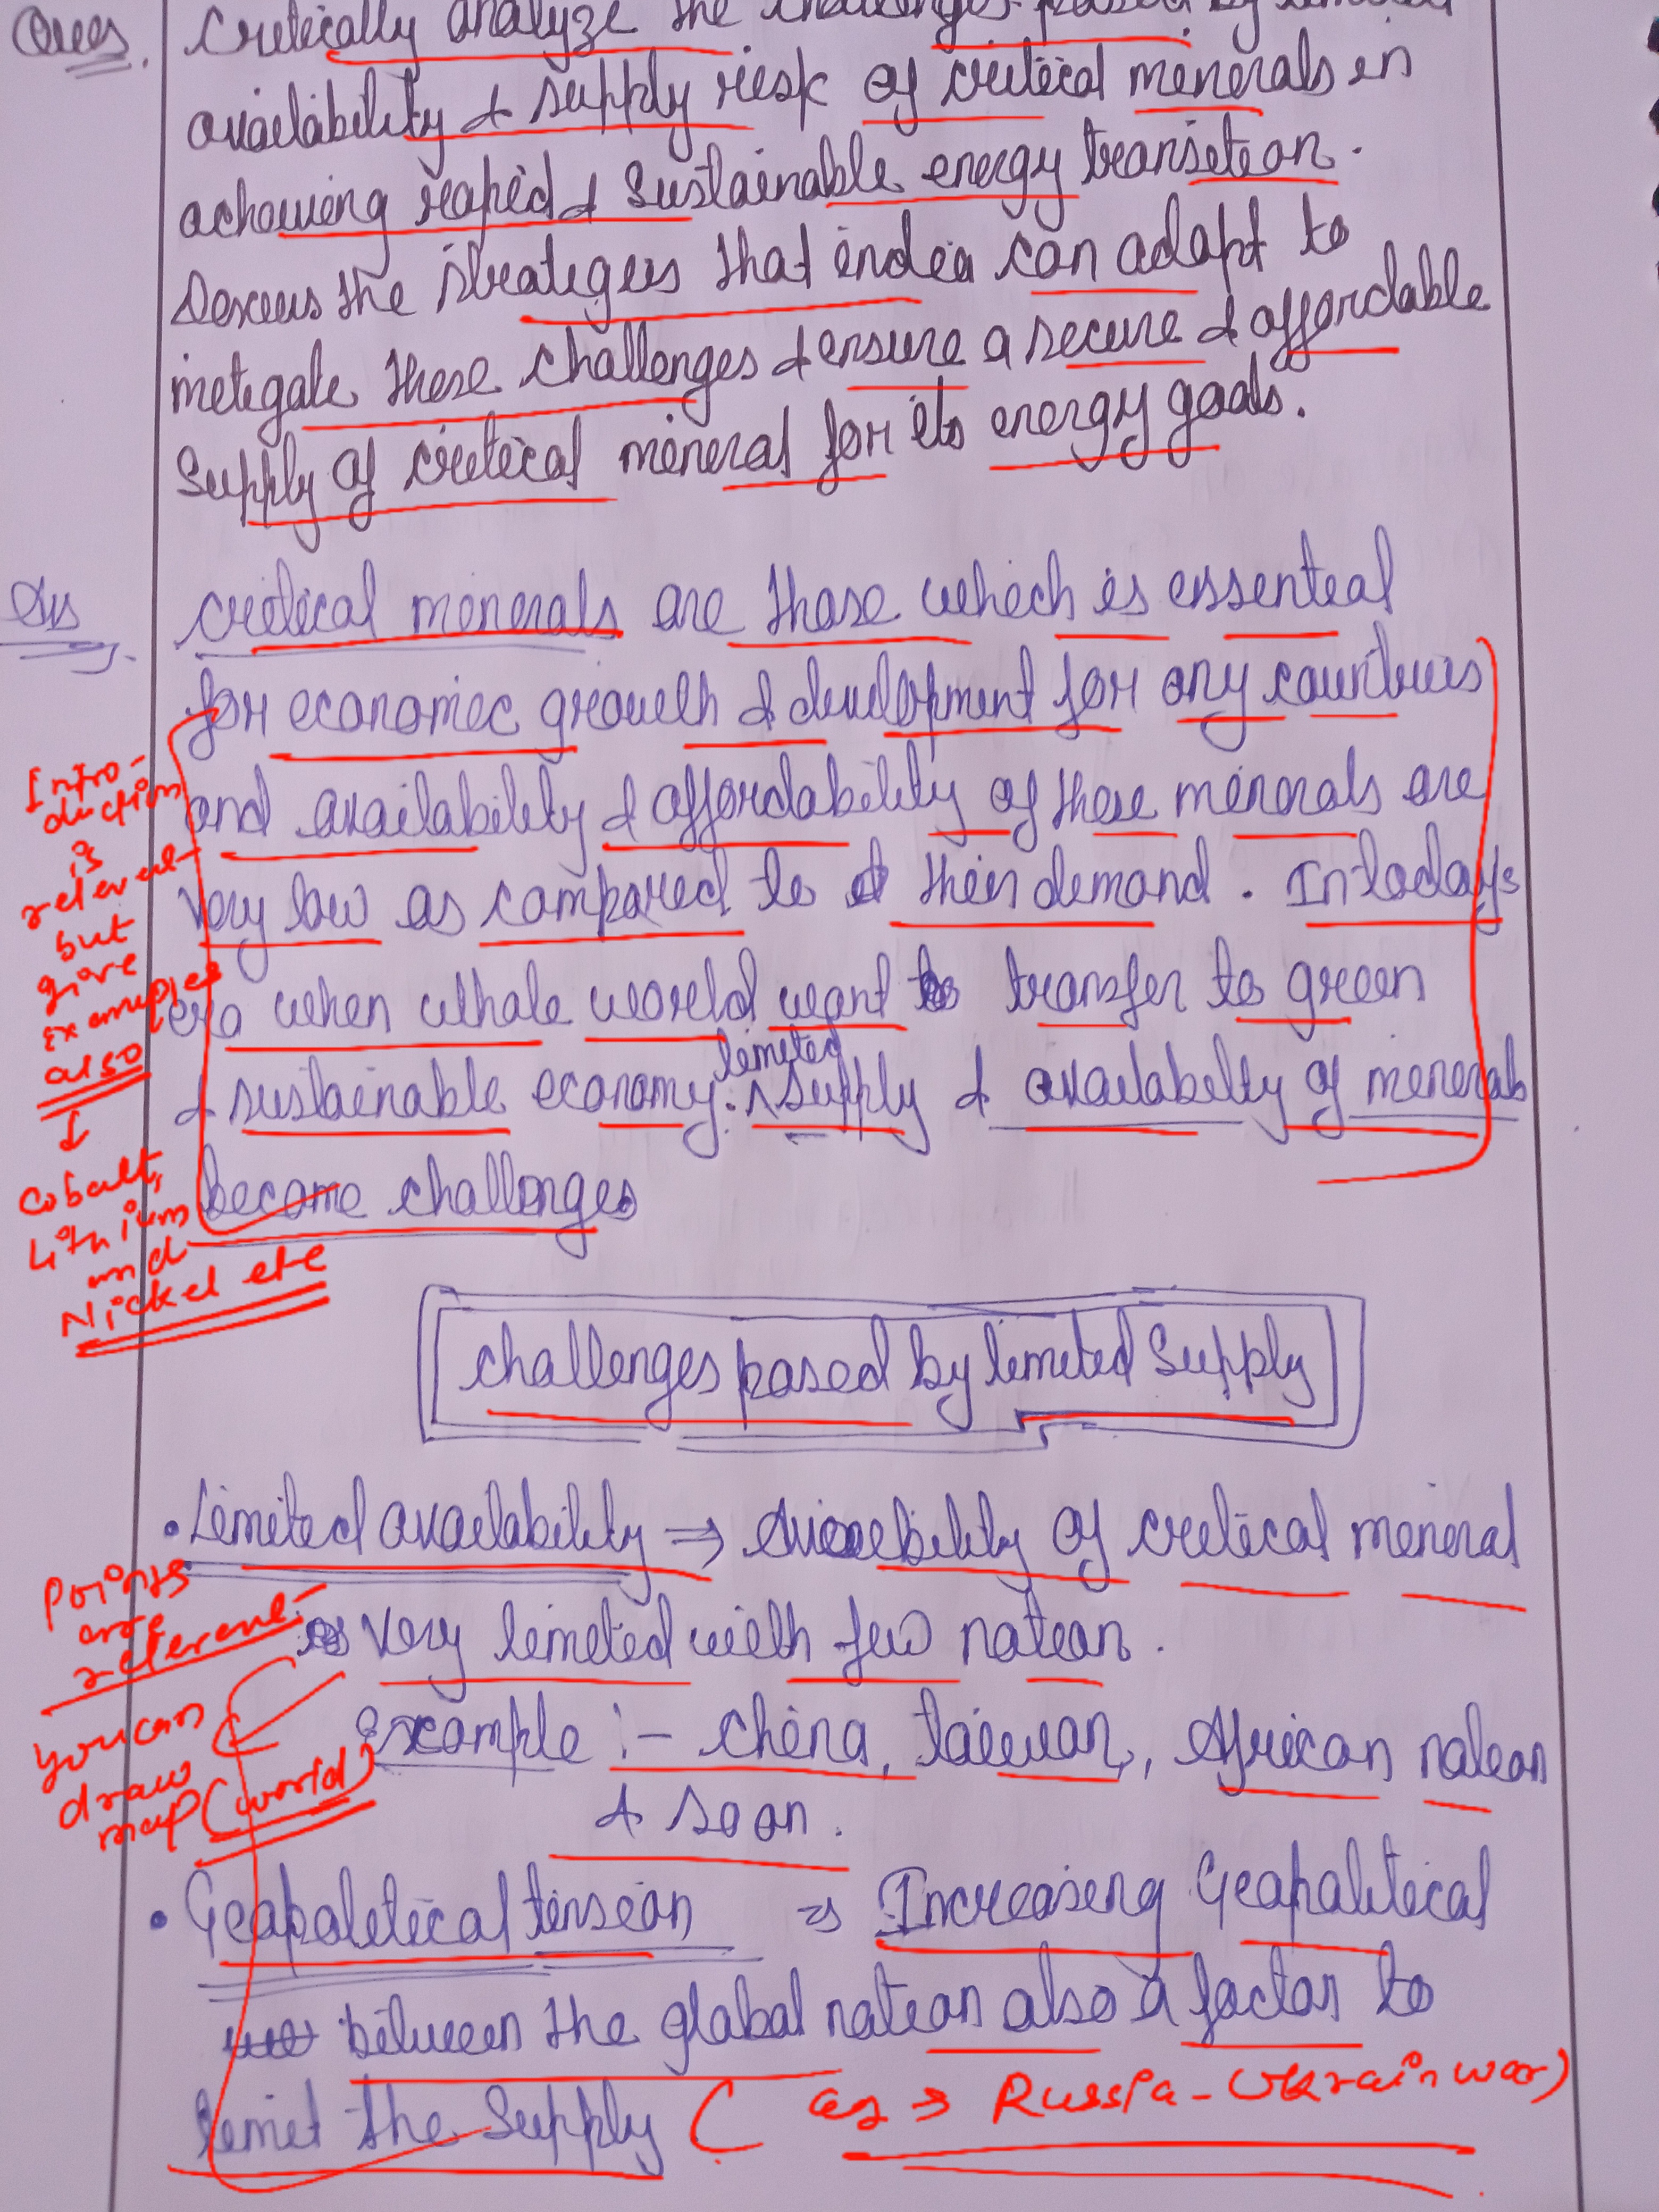 Ques. Critically analyze the challenges posed by limited
availability & supply risk of critical minerals in
achieving rapid & sustainable energy transition.
Discuss the strategies that india can adapt to
mitigate these challenges & ensure a secure & affordable
supply of critical mineral for its energy goals.
Ans critical minerals are those which is essential
for economic growth & development for any countries
and availability & affordability of these minerals are
very low as compared to their demand. In today's
era when whole world want to transfer to green
& sustainable economy. limited supply & availabelty of minerals
become challenges
Intro-
duction
is
relevent
but
give
examples
also
↓
Cobalt,
Lithium
and
Nickel etc
challenges posed by limited supply
• Limited availability ⇒ of critical mineral
is very limited with few nation.
Example :- china, taiwan, African nation
& soon.
Points
are
relevent
you can
draw
map (world)
• Geopolitical tension ⇒ Increasing Geopolitical
between the global nation also a factor to
limit the supply ( as → Russia-Ukrain war)